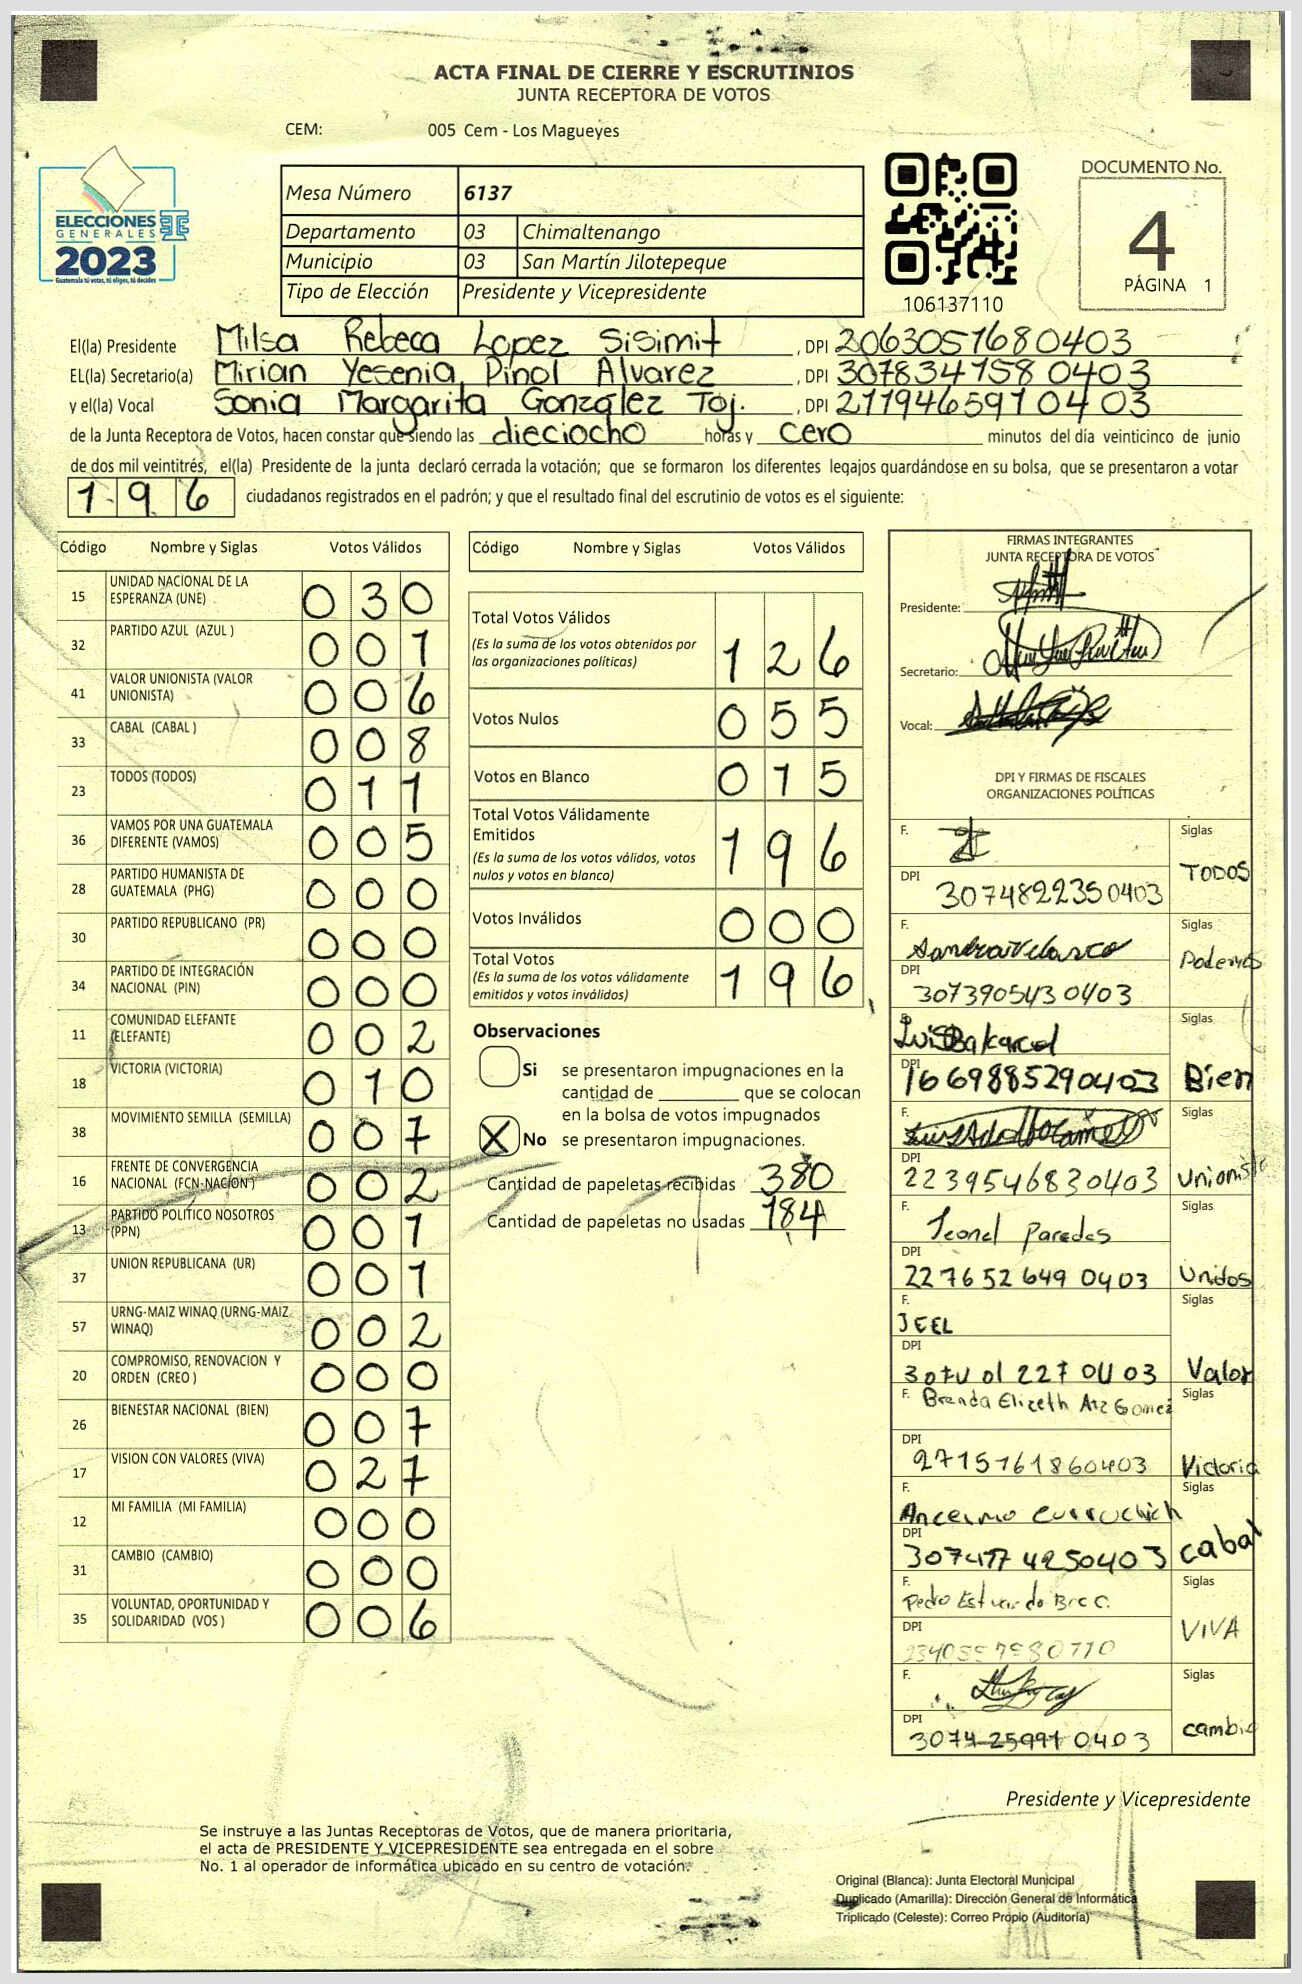 ACTA FINAL DE CIERRE Y ESCRUTINIOS
JUNTA RECEPTORA DE VOTOS
CEM: 005 Cem - Los Magueyes
ELECCIONES
GENERALES
2023
Guatemala tú votas, tú eliges, tú decides
Mesa Número 6137
Departamento 03 Chimaltenango
Municipio 03 San Martín Jilotepeque
Tipo de Elección Presidente y Vicepresidente
106137110
DOCUMENTO No.
4
PÁGINA 1
El(la) Presidente Milsa Rebeca Lopez Sisimit , DPI 2063051680403
EL(la) Secretario(a) Mirian Yesenia Pinol Alvarez , DPI 3078341580403
y el(la) Vocal Sonia Margarita González Toj. , DPI 2119465910403
de la Junta Receptora de Votos, hacen constar que siendo las dieciocho horas y cero minutos del día veinticinco de junio
de dos mil veintitrés, el(la) Presidente de la junta declaró cerrada la votación; que se formaron los diferentes legajos guardándose en su bolsa, que se presentaron a votar
196 ciudadanos registrados en el padrón; y que el resultado final del escrutinio de votos es el siguiente:
Código Nombre y Siglas Votos Válidos
15 UNIDAD NACIONAL DE LA
ESPERANZA (UNE) 030
32 PARTIDO AZUL (AZUL ) 001
41 VALOR UNIONISTA (VALOR
UNIONISTA) 006
33 CABAL (CABAL ) 008
23 TODOS (TODOS) 011
36 VAMOS POR UNA GUATEMALA
DIFERENTE (VAMOS) 005
28 PARTIDO HUMANISTA DE
GUATEMALA (PHG) 000
30 PARTIDO REPUBLICANO (PR) 000
34 PARTIDO DE INTEGRACIÓN
NACIONAL (PIN) 000
11 COMUNIDAD ELEFANTE
(ELEFANTE) 002
18 VICTORIA (VICTORIA) 010
38 MOVIMIENTO SEMILLA (SEMILLA) 007
16 FRENTE DE CONVERGENCIA
NACIONAL (FCN-NACION ) 002
13 PARTIDO POLITICO NOSOTROS
(PPN) 001
37 UNION REPUBLICANA (UR) 001
57 URNG-MAIZ WINAQ (URNG-MAIZ
WINAQ) 002
20 COMPROMISO, RENOVACION Y
ORDEN (CREO ) 000
26 BIENESTAR NACIONAL (BIEN) 007
17 VISION CON VALORES (VIVA) 027
12 MI FAMILIA (MI FAMILIA) 000
31 CAMBIO (CAMBIO) 000
35 VOLUNTAD, OPORTUNIDAD Y
SOLIDARIDAD (VOS ) 006
Código Nombre y Siglas Votos Válidos
Total Votos Válidos
(Es la suma de los votos obtenidos por
las organizaciones políticas) 126
Votos Nulos 055
Votos en Blanco 015
Total Votos Válidamente
Emitidos
(Es la suma de los votos válidos, votos
nulos y votos en blanco) 196
Votos Inválidos 000
Total Votos
(Es la suma de los votos válidamente
emitidos y votos inválidos) 196
Observaciones
Si se presentaron impugnaciones en la
cantidad de que se colocan
en la bolsa de votos impugnados
X No se presentaron impugnaciones.
Cantidad de papeletas recibidas 380
Cantidad de papeletas no usadas 184
FIRMAS INTEGRANTES
JUNTA RECEPTORA DE VOTOS
Presidente:
Secretario:
Vocal:
DPI Y FIRMAS DE FISCALES
ORGANIZACIONES POLÍTICAS
F. Siglas
DPI 3074822350403 TODOS
F. Sandra Velasco Siglas
DPI 3073905430403 Podemos
Siglas
DPI 1669885290403 Bien
F. Siglas
DPI 2239546830403
F. Leonel Paredes Siglas
DPI 2276526490403 Unidos
F. JEEL Siglas
DPI Valor
F. Brenda Elizeth Siglas
DPI 2715161860403 Victoria
F. Ancelmo Curruchich Siglas
DPI cabal
F. Pedro Siglas
DPI VIVA
F. Siglas
DPI 3074259910403 cambio
Presidente y Vicepresidente
Se instruye a las Juntas Receptoras de Votos, que de manera prioritaria,
el acta de PRESIDENTE Y VICEPRESIDENTE sea entregada en el sobre
No. 1 al operador de informática ubicado en su centro de votación.
Original (Blanca): Junta Electoral Municipal
Duplicado (Amarilla): Dirección General de Informática
Triplicado (Celeste): Correo Propio (Auditoría)